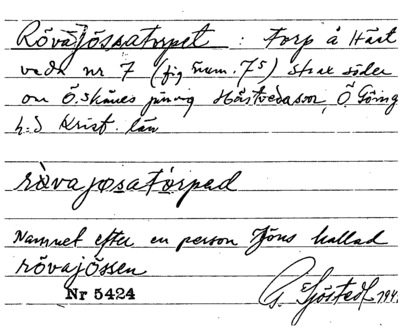 Rövajössatorpet : Torp å Häst
veda nr 7 (fig num. 7⁵) strax söder
om Ö. Skånes järnvg Hästveda sn, Ö. Göing
h:d Krist. län
ròvajosatórpad
Namnet efter en person Jöns kallad
rövajössen
Nr 5424
G. Sjöstedt 194